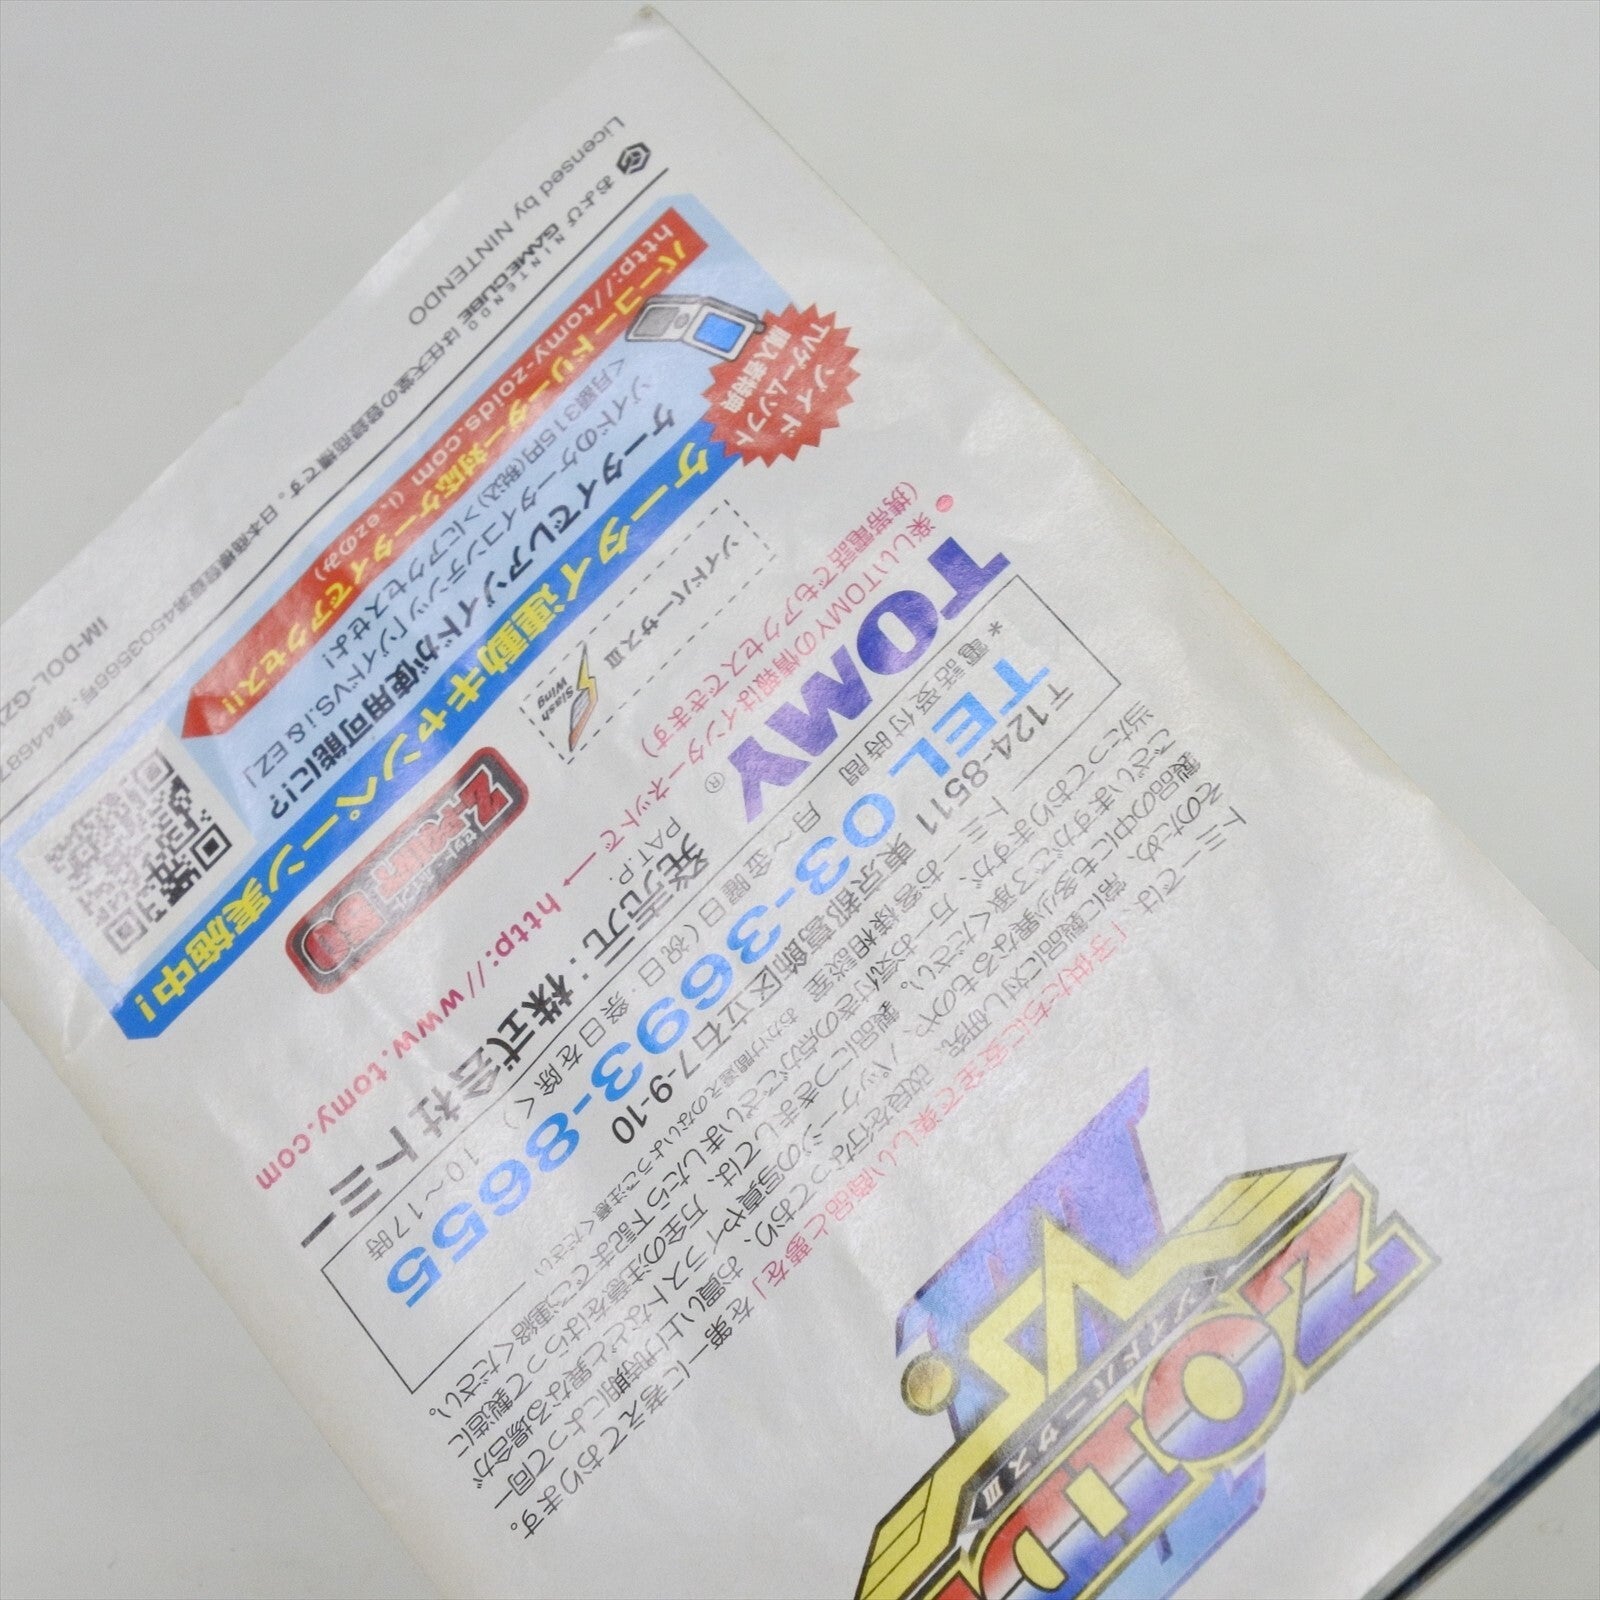 ZOID
VS.
ゾイドバーサスⅢ
トミーでは、「子供たちに安全で楽しい商品と夢を」を第一に考えております。
そのため、常に製品に対し研究、改良を行なっており、お買い上げ時期によって同一
製品の中にも多少異なるものや、パッケージの写真やイラストなどと異なる場合が
ございますがご了承ください。製品につきましては、万全の注意をはらって製造に
当たっておりますが、万一お気付きの点がございましたら下記までご連絡ください。
トミーお客様相談室 おかけ間違えのないようご注意ください
〒124-8511 東京都葛飾区立石7-9-10
TEL 03-3693-8655
*電話受付時間 月〜金曜日(祝日・祭日を除く) 10〜17時
TOMY® 発売元:株式会社トミー
PAT.P.
●楽しいTOMYの情報はインターネットで→ http://www.tomy.com
(携帯電話でもアクセスできます)
ゾイドバーサスⅢ
Slash
Wing
ゾイド
TVゲームソフト
購入者特典
ケータイ連動キャンペーン実施中!
ケータイでレアゾイドが使用可能に!?
ゾイドのケータイコンテンツ「ゾイドVS.i & EZ」
<月額315円(税込)>にアクセスせよ!
バーコードリーダー対応ケータイでアクセス!!
http://tomy-zoids.com (i, ezのみ)
および NINTENDO GAMECUBE は任天堂の登録商標です。日本商標登録第4503566号、第44687
Licensed by NINTENDO
IM-DOL-GZ